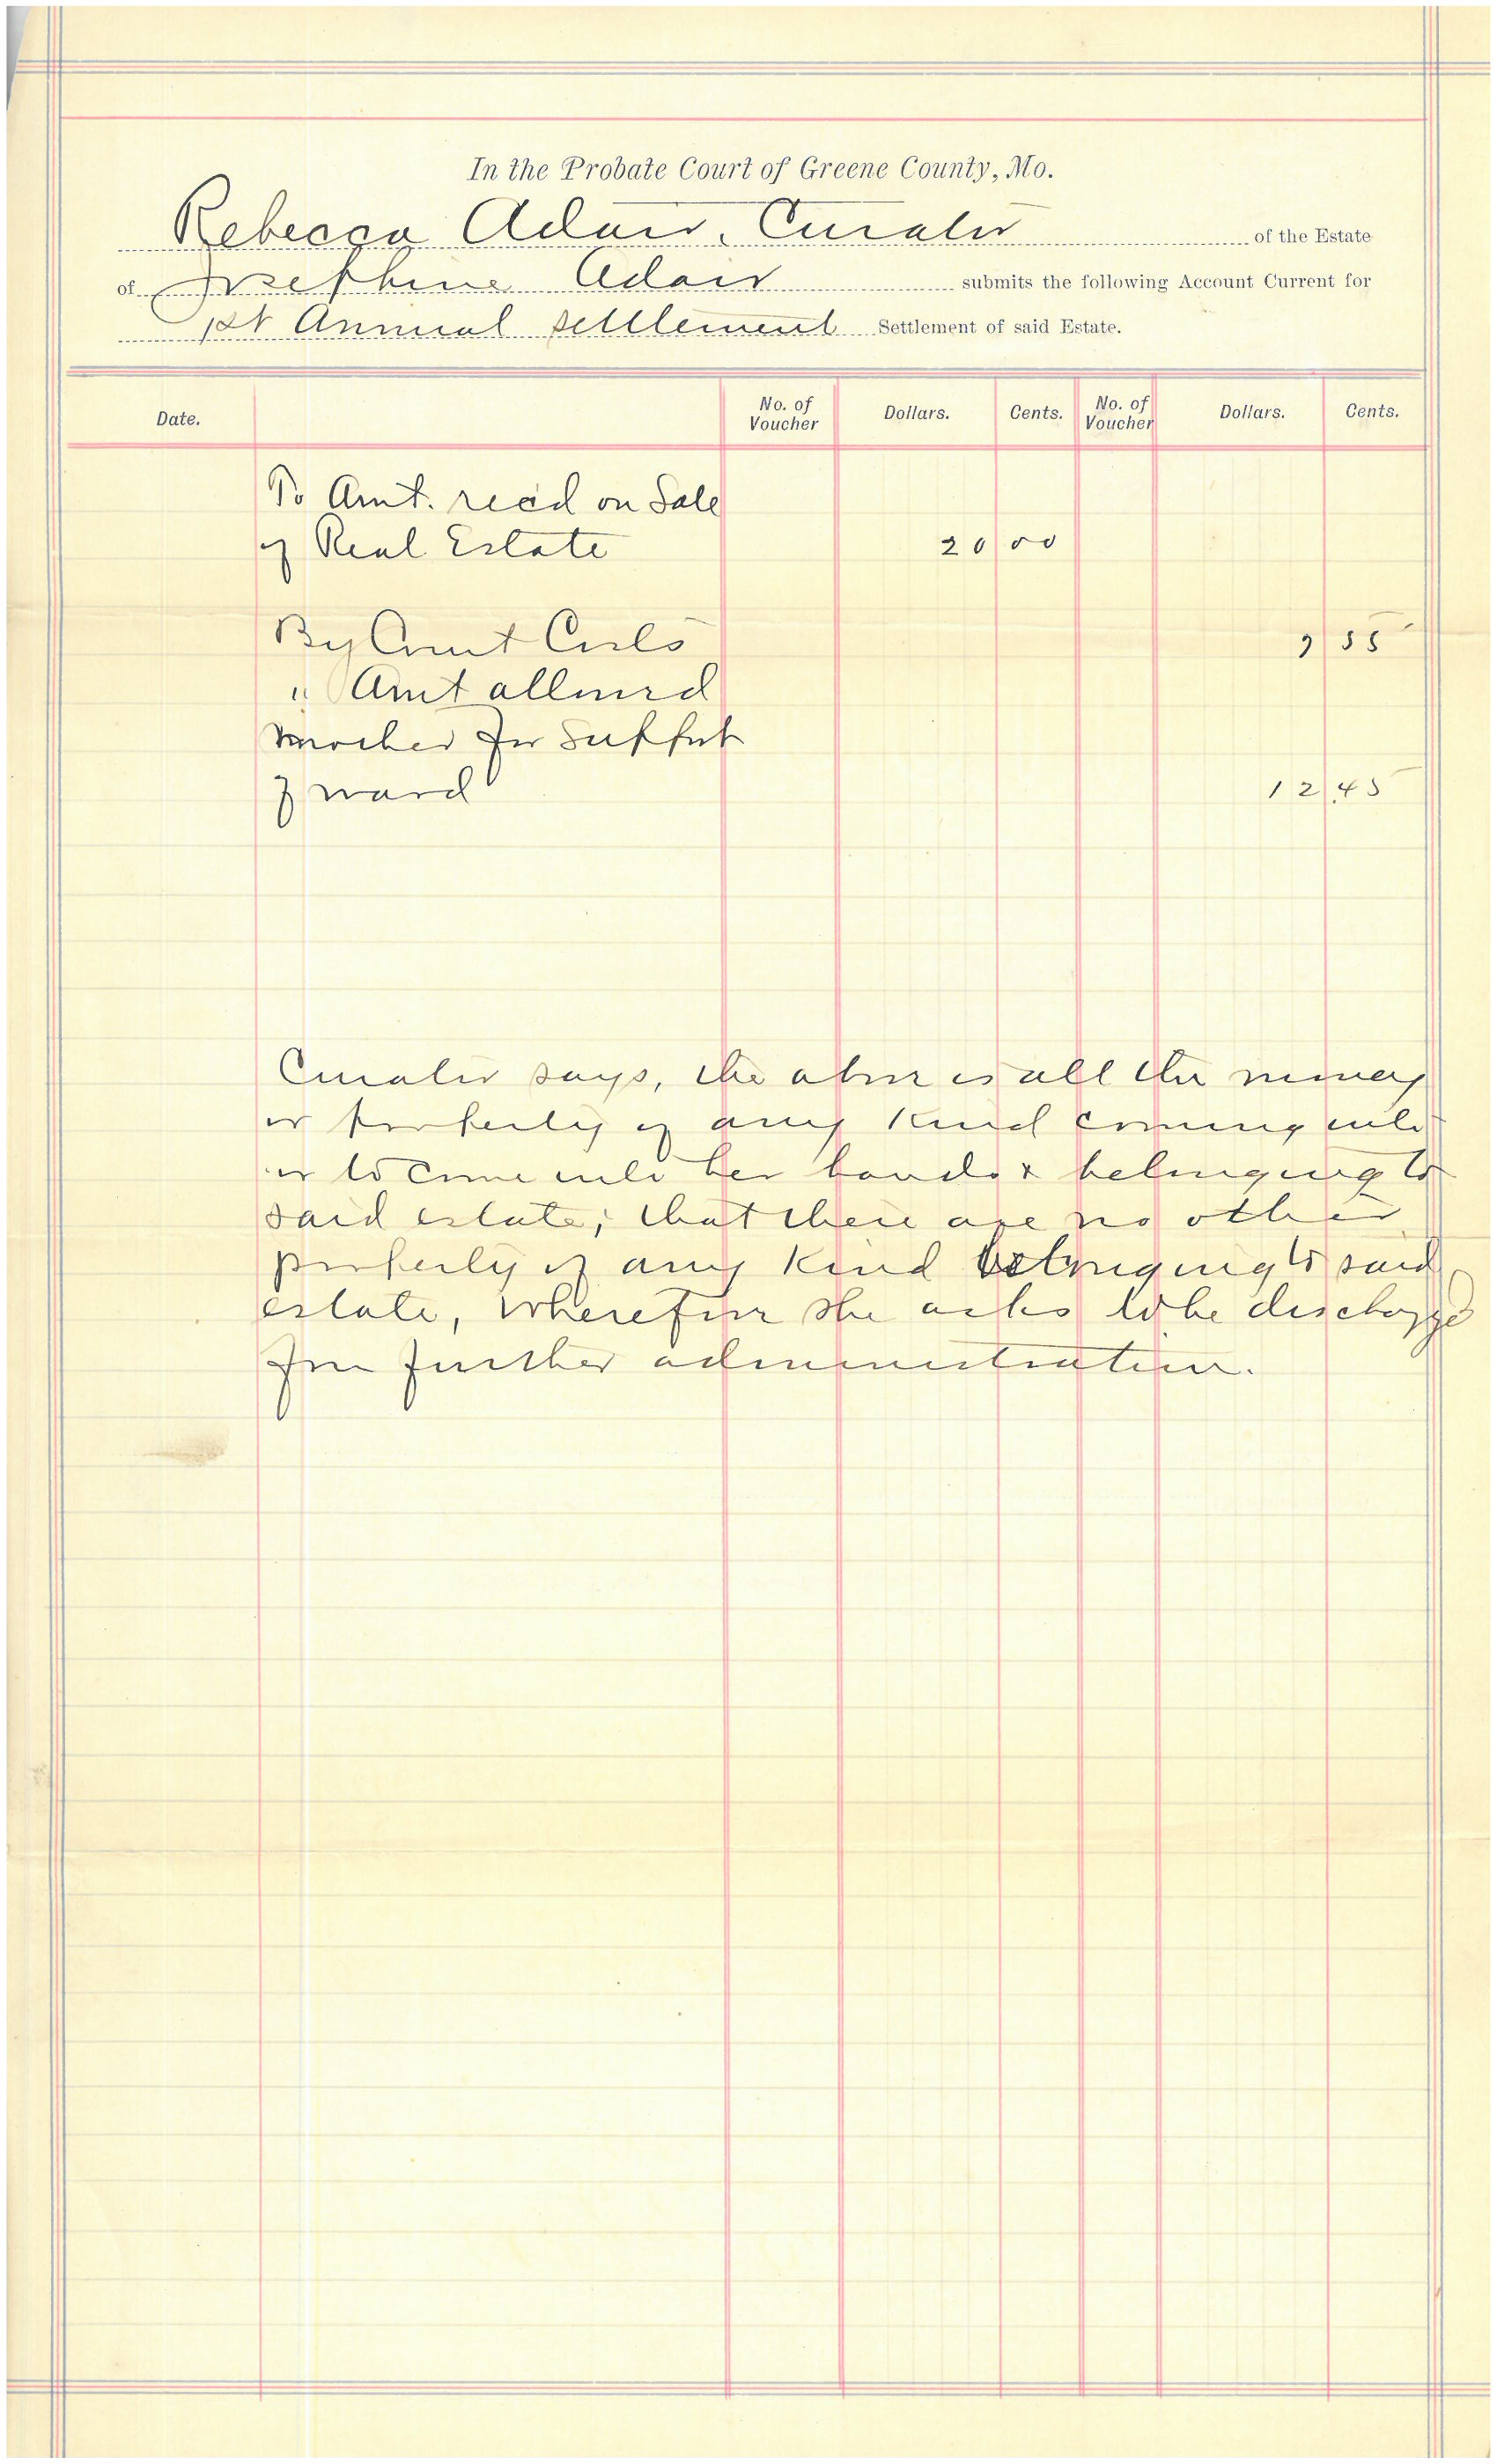 In the Probate Court of Greene County, Mo.
Rebecca Adair, Curator of the Estate
of Josephine Adair submits the following Account Current for
1st Annual settlement Settlement of said Estate.
Date. No. of Voucher Dollars. Cents. No. of Voucher Dollars. Cents.
To Amt. recd on Sale
of Real Estate 20 00
By Court Costs 7 55
" Amt allowed
mother for support
of ward 12 45
Curator says, the above is all the money
or property of any kind coming into
or to come into her hands & belonging to
said estate; that there are no other
property of any kind belonging to said
estate, Wherefore she asks to be discharged
from further administration.